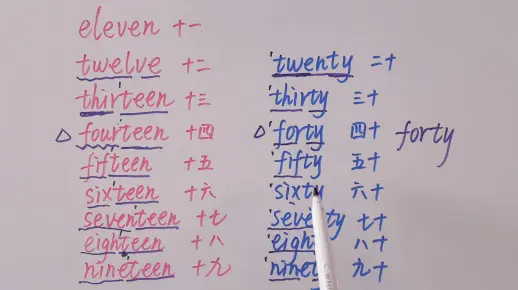 eleven 十一
twelve 十二 twenty 二十
thirteen 十三 thirty 三十
△ fourteen 十四 △ forty 四十 forty
fifteen 十五 fifty 五十
sixteen 十六 sixty 六十
seventeen 十七 seventy 七十
eighteen 十八 八十
nineteen 十九 九十